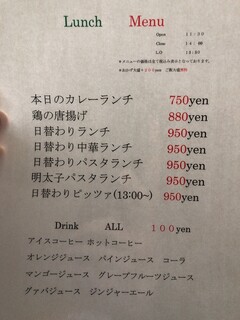 Lunch Menu
Open 11:30
Close 14:00
L.O 13:30
本日のカレーランチ 750yen
鶏の唐揚げ 880yen
日替わりランチ 950yen
日替わり中華ランチ 950yen
日替わりパスタランチ 950yen
明太子パスタランチ 950yen
日替わりピッツァ(13:00~) 950yen
Drink ALL 100yen
アイスコーヒー ホットコーヒー
オレンジジュース パインジュース コーラ
マンゴージュース グレープフルーツジュース
グァバジュース ジンジャーエール